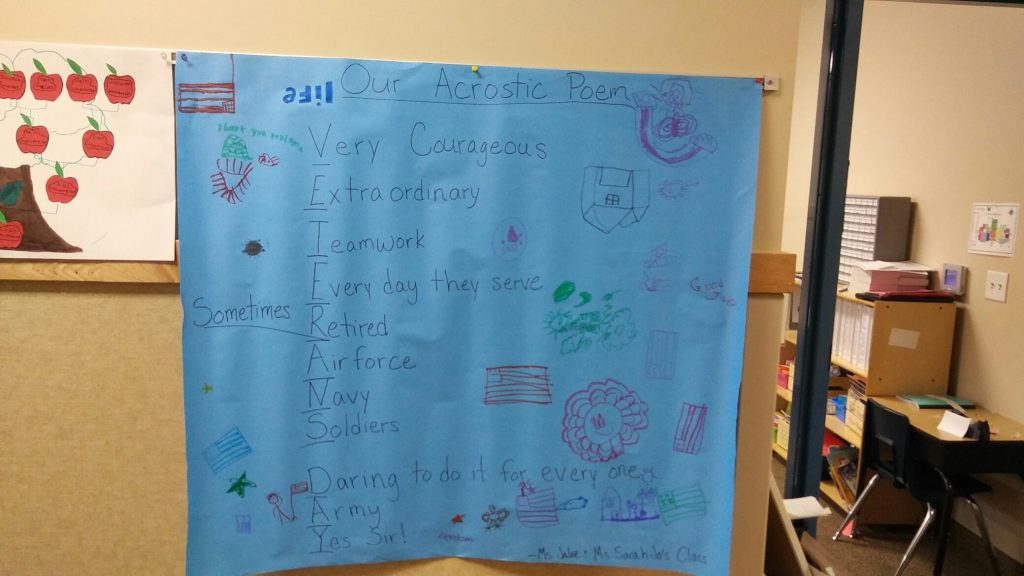 life
Our Acrostic Poem
Very Courageous
Extraordinary
Teamwork
Every day they serve
Sometimes Retired
Airforce
Navy
Soldiers
Daring to do it for every one
Army
Yes Sir!
Thank you
Good
freedom
-Ms. Ms. Sarah Jo's Class